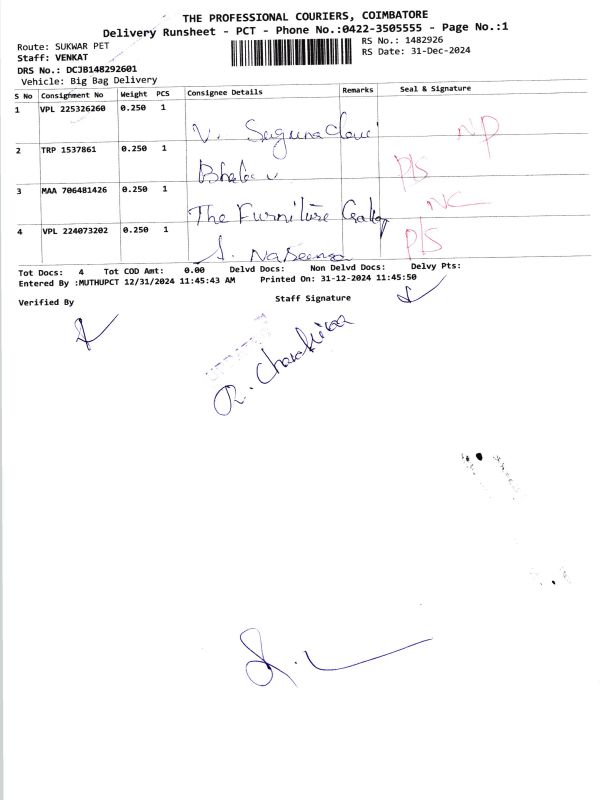 THE PROFESSIONAL COURIERS, COIMBATORE
Delivery Runsheet - PCT - Phone No.:0422-3505555 - Page No.:1
Route: SUKWAR PET
RS No.: 1482926
Staff: VENKAT
RS Date: 31-Dec-2024
DRS No.: DCJB148292601
Vehicle: Big Bag Delivery
S No Consignment No Weight PCS Consignee Details Remarks Seal & Signature
1 VPL 225326260 0.250 1
V. Sugunadevi NP
2 TRP 1537861 0.250 1
P/S
3 MAA 706481426 0.250 1
The Furniture NC
4 VPL 224073202 0.250 1
P/S
A. Naseema
Tot Docs: 4 Tot COD Amt: 0.00 Delvd Docs: Non Delvd Docs: Delvy Pts:
Entered By :MUTHUPCT 12/31/2024 11:45:43 AM Printed On: 31-12-2024 11:45:50
Verified By Staff Signature